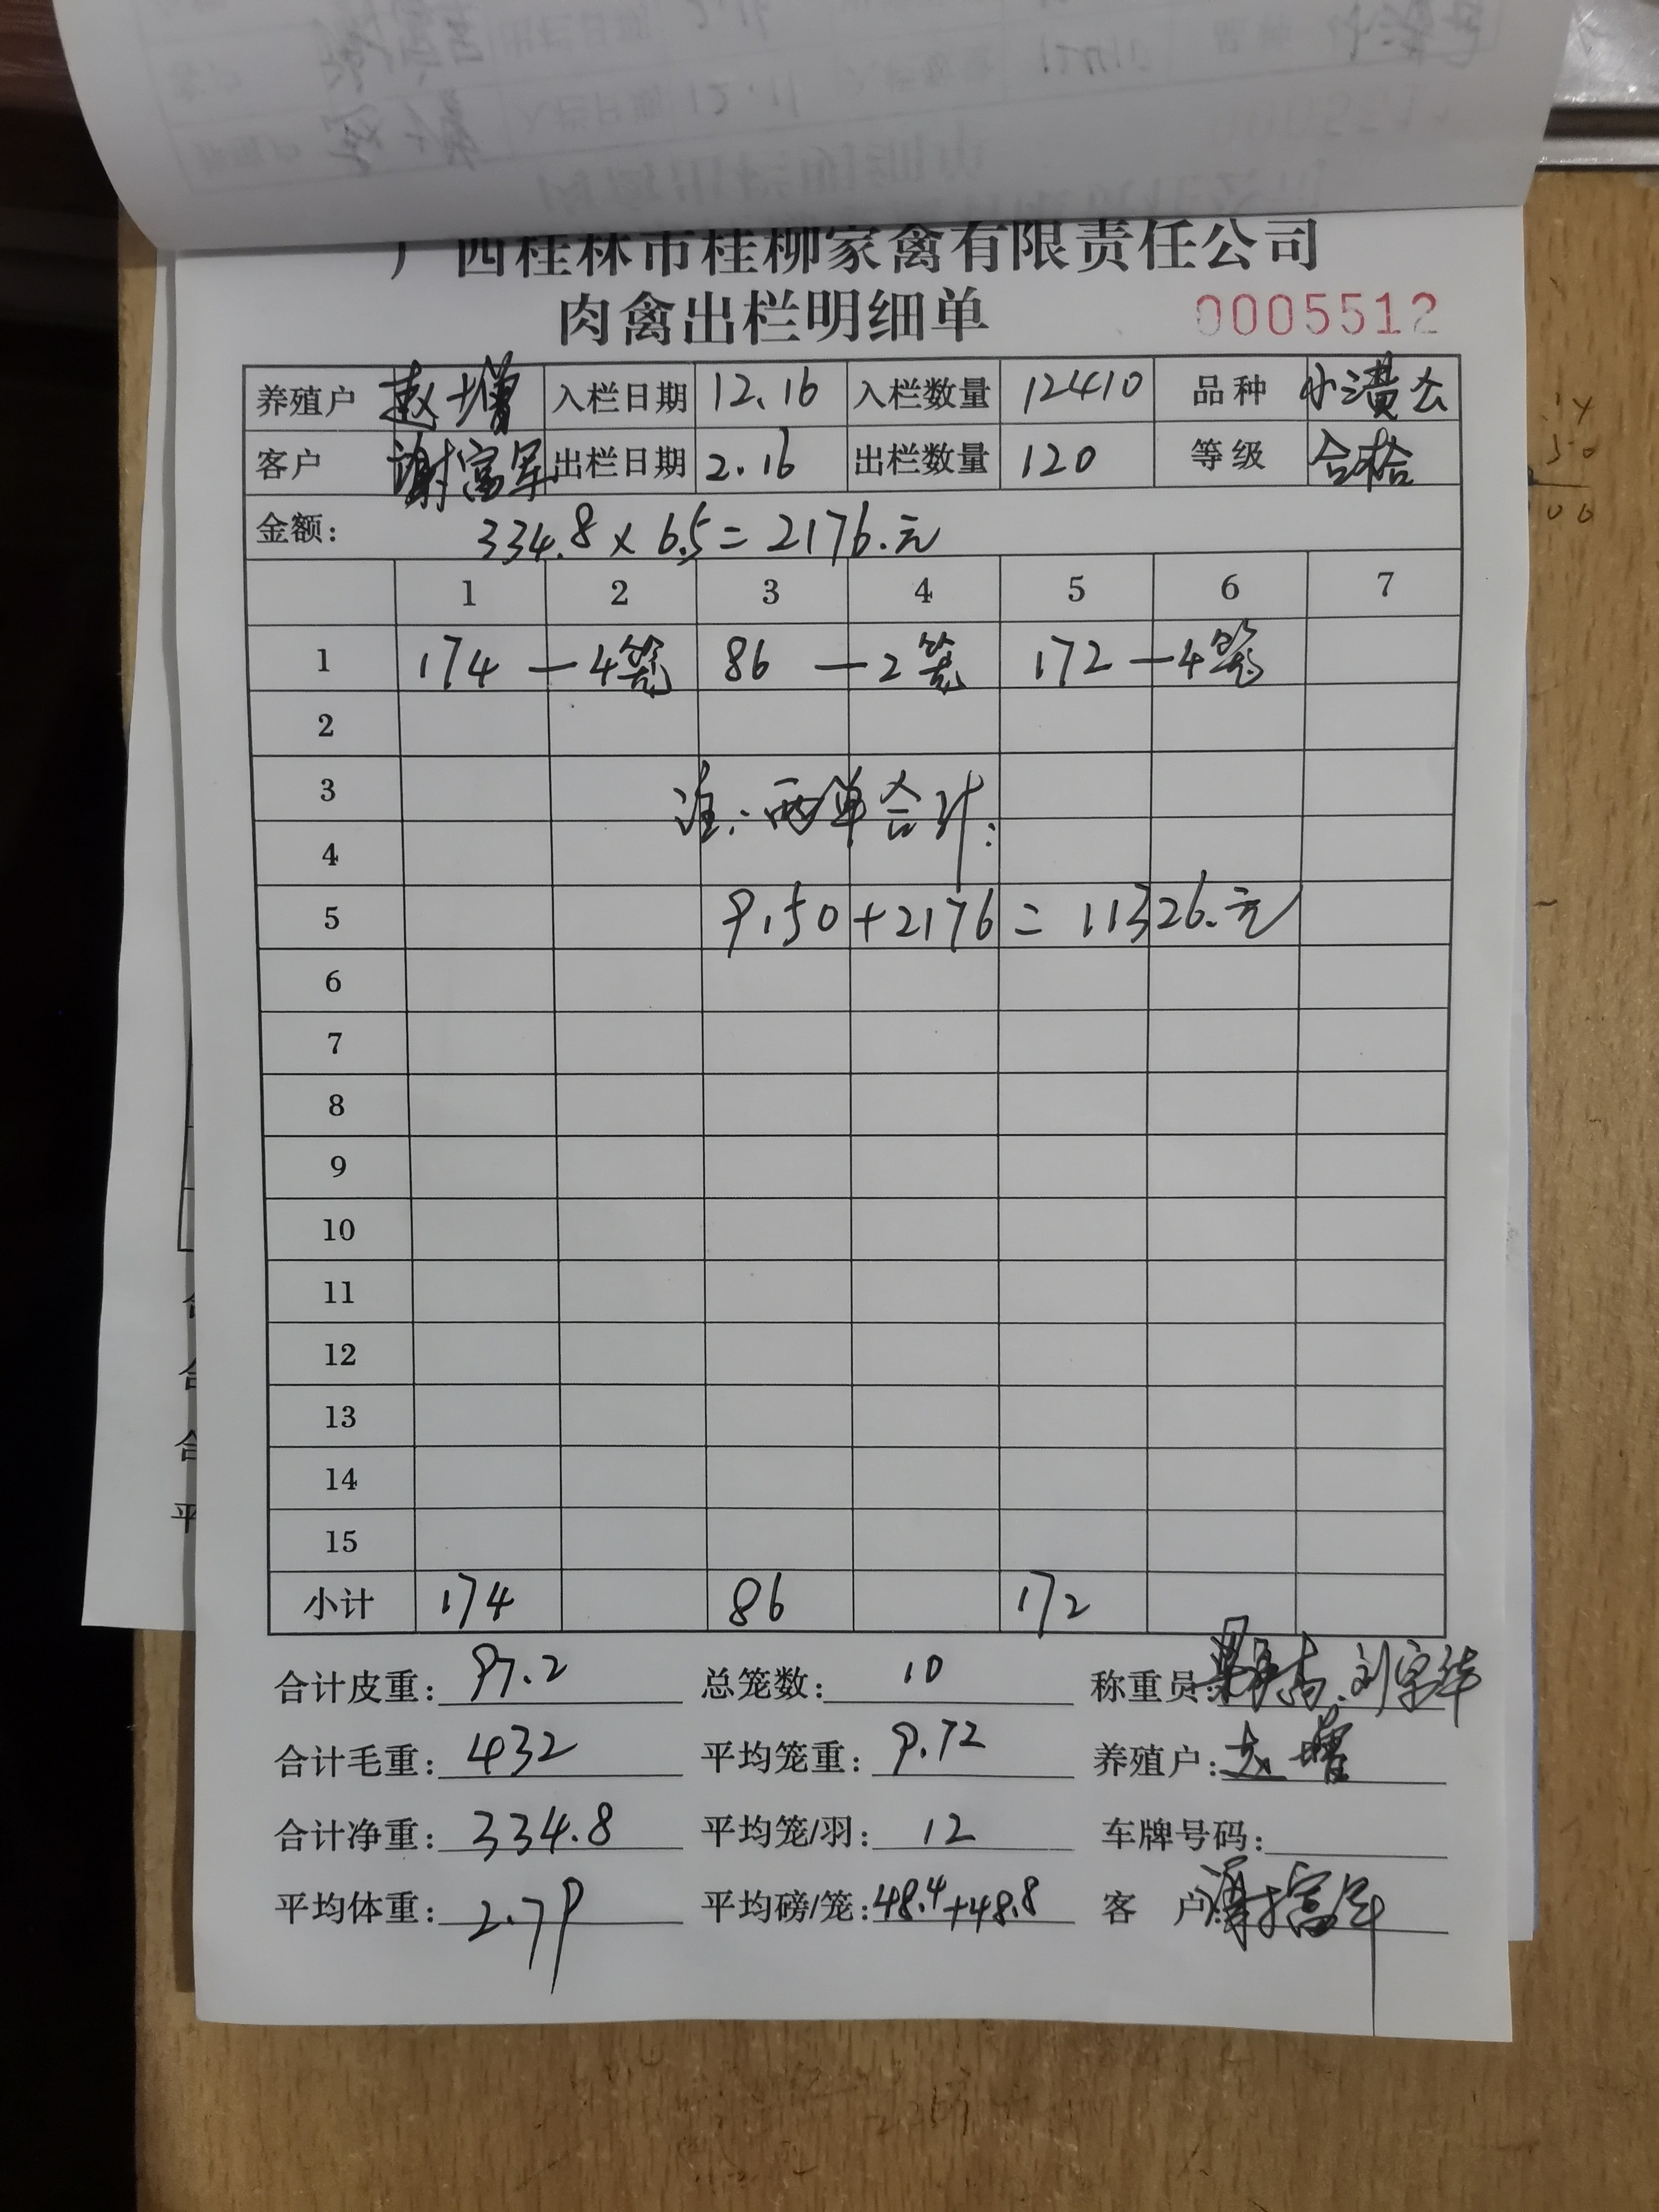 广西桂林市桂柳家禽有限责任公司
肉禽出栏明细单 0005512
养殖户 赵增 入栏日期 12.16 入栏数量 12410 品种 小黄公
客户 谢富军 出栏日期 2.16 出栏数量 120 等级 合格
金额: 334.8 x 6.5 = 2176.元
1 2 3 4 5 6 7
1 174 — 4笼 86 — 2笼 172 — 4笼
2
3 注:两单合计:
4
5 9150+2176 = 11326.元
6
7
8
9
10
11
12
13
14
15
小计 174 86 172
合计皮重: 97.2 总笼数: 10 称重员: 刘宗华
合计毛重: 432 平均笼重: 9.72 养殖户: 赵增
合计净重: 334.8 平均笼/羽: 12 车牌号码:
平均体重: 2.79 平均磅/笼: 48.4+48.8 客户 谢富军